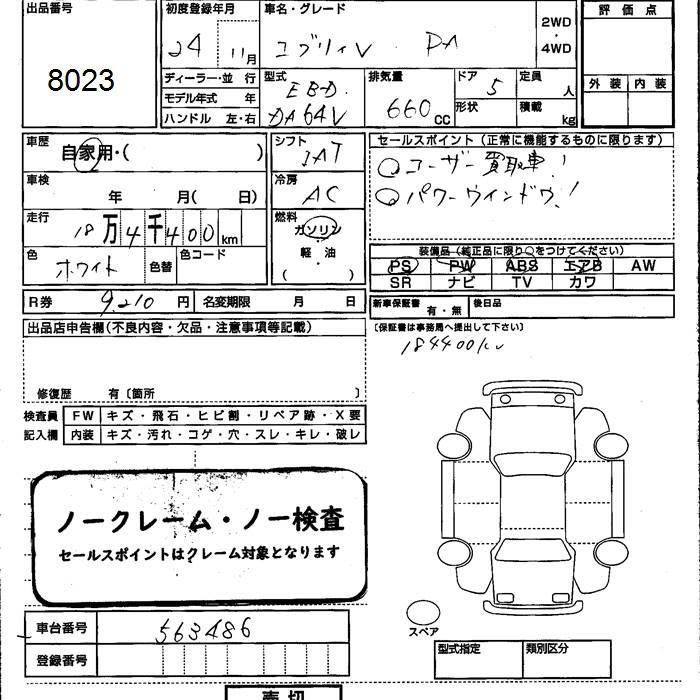 出品番号
8023
初度登録年月
24 11月
車名・グレード
エブリィV PA
2WD
・
4WD
評価点
外装 内装
ディーラー・並行
モデル年式 年
ハンドル 左・右
型式
EBD-
DA64V
排気量
660cc
ドア 5
形状
定員 人
積載 kg
車歴
自家用・( )
車検
年 月( 日)
走行
18万4千400km
色
ホワイト
色替
色コード
シフト
IAT
冷房
AC
燃料
ガソリン
軽・油
( )
セールスポイント(正常に機能するものに限ります)
○ユーザー買取車!
○パワーウインドウ!
装備品(純正品に限り○をつけてください)
PS PW ABS エアB AW
SR ナビ TV カワ
R券 9,210円 名変期限 月 日
新車保証書 有・無 後日品
(保証書は事務局へ提出して下さい)
184400km
出品店申告欄(不良内容・欠品・注意事項等記載)
修復歴 有〔箇所 〕
検査員 FW キズ・飛石・ヒビ割・リペア跡・X要
記入欄 内装 キズ・汚れ・コゲ・穴・スレ・キレ・破レ
ノークレーム・ノー検査
セールスポイントはクレーム対象となります
スペア
車台番号 563486
登録番号
型式指定 類別区分
売切